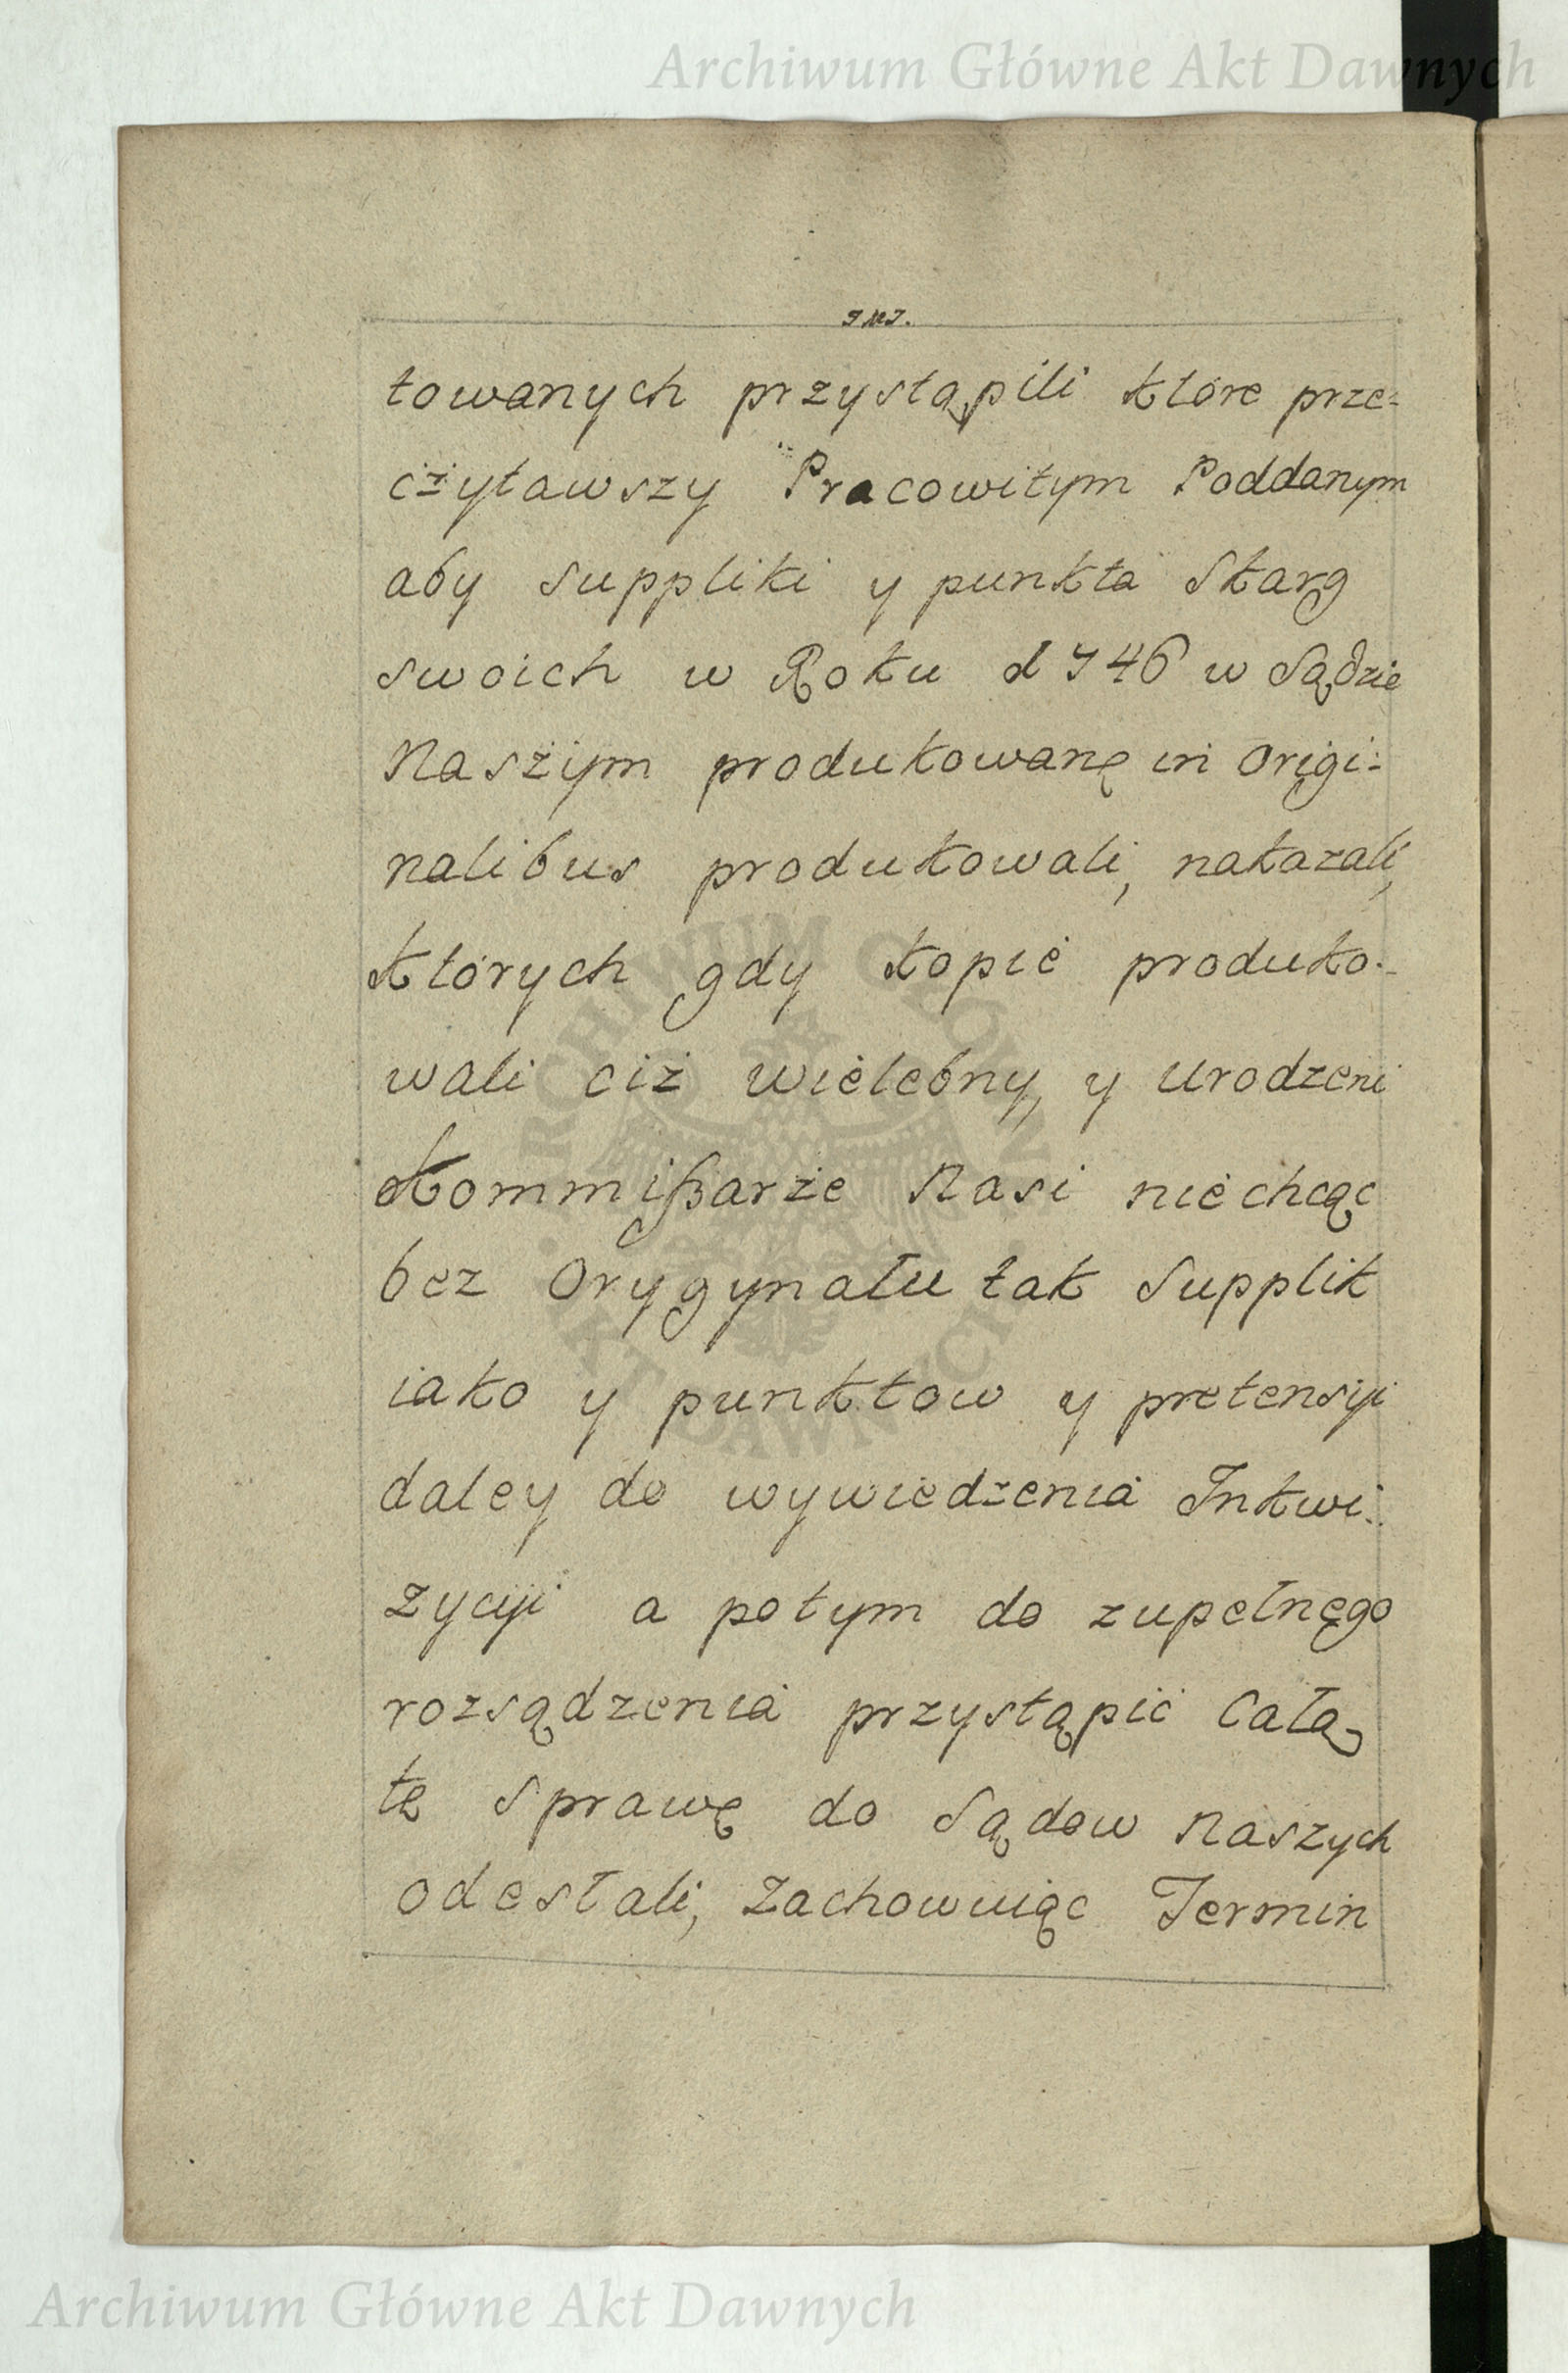 Archiwum Główne Akt Dawnych
JMJ.
towanych przystąpili które prze=
cżytawszy Pracowitym Poddanym
aby suppliki y punkta Skarg
swoich w Roku 1746 w Sądzie
Naszym produkowanę in Origi=
nalibus produkowali, nakazali,
których gdy kopie produko=
wali ciż wielebny, y Urodzeni
Kommißarze Nasi niechcąc
bez Orygynału tak Supplik
iako y punktow y pretensyi
daley do wywiedzenia Inkwi=
zycyi a potym do zupełnęgo
rozsądzenia przystąpić Całą
tę Sprawę do Sądow Naszych
odesłali, Zachowuiąc Termin
ARCHIWUM GŁÓWNE AKT DAWNYCH
Archiwum Główne Akt Dawnych